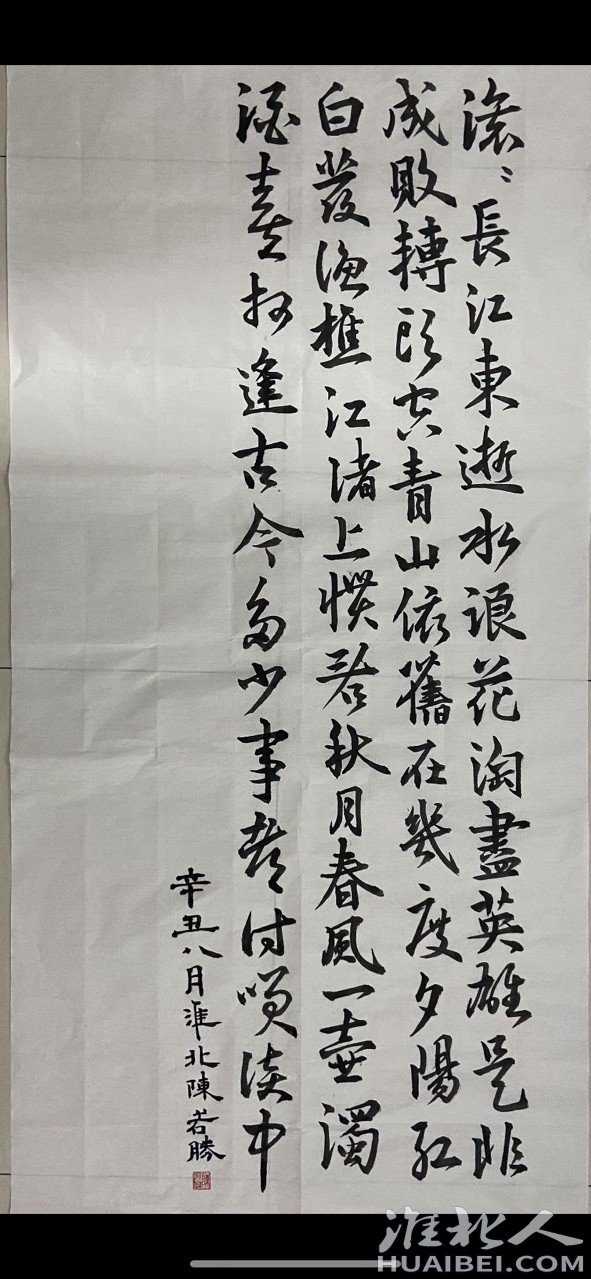 滚〻長江東逝水浪花淘盡英雄是非
成敗轉頭空青山依舊在幾度夕陽紅
白發漁樵江渚上慣看秋月春風一壺濁
酒喜相逢古今多少事都付笑談中
辛丑八月淮北陳若勝
淮北人
HUAIBEI.COM